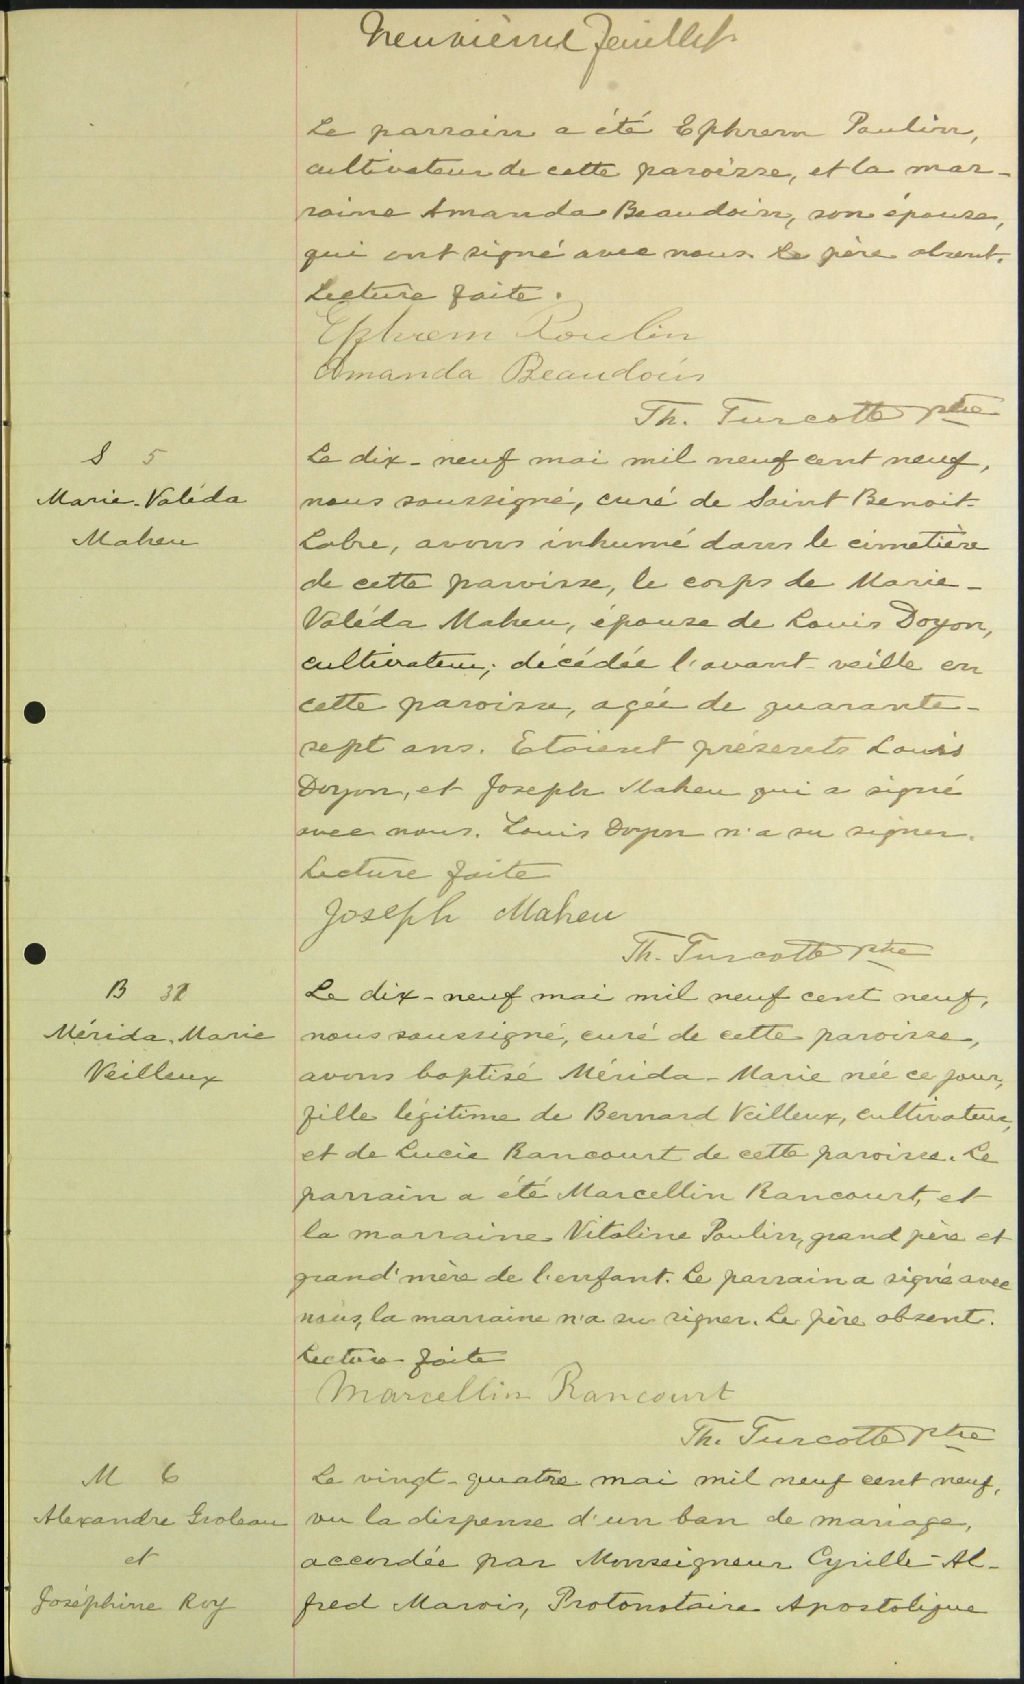 Neuvième feuillet
Le parrain a été Ephrem Poulin,
cultivateur de cette paroisse, et la mar-
raine Amanda Beaudoin, son épouse,
qui ont signé avec nous. Le père absent.
Lecture faite.
Ephrem Poulin
Amanda Beaudoin
Th. Turcotte ptre
S 5
Marie-Valéda
Maheu
Le dix-neuf mai mil neuf cent neuf,
nous soussigné, curé de Saint Benoit-
Labre, avons inhumé dans le cimetière
de cette paroisse, le corps de Marie-
Valéda Maheu, épouse de Louis Doyon,
cultivateur, décédée l'avant-veille en
cette paroisse, agée de quarante-
sept ans. Etaient présents Louis
Doyon, et Joseph Maheu qui a signé
avec nous. Louis Doyon n'a su signer.
Lecture faite
Joseph Maheu
Th. Turcotte ptre
B
Mérida-Marie
Veilleux
Le dix-neuf mai mil neuf cent neuf,
nous soussigné, curé de cette paroisse,
avons baptisé Mérida-Marie née ce jour,
fille légitime de Bernard Veilleux, cultivateur,
et de Lucie Rancourt de cette paroisse. Le
parrain a été Marcellin Rancourt, et
la marraine Vitaline Poulin, grand père et
grand'mère de l'enfant. Le parrain a signé avec
nous, la marraine n'a su signer. Le père absent.
Lecture faite
Marcellin Rancourt
Th. Turcotte ptre
M 6
Alexandre Groleau
et
Joséphine Roy
Le vingt-quatre mai mil neuf cent neuf,
vu la dispense d'un ban de mariage,
accordée par Monseigneur Cyrille-Al-
fred Marois, Protonotaire Apostolique